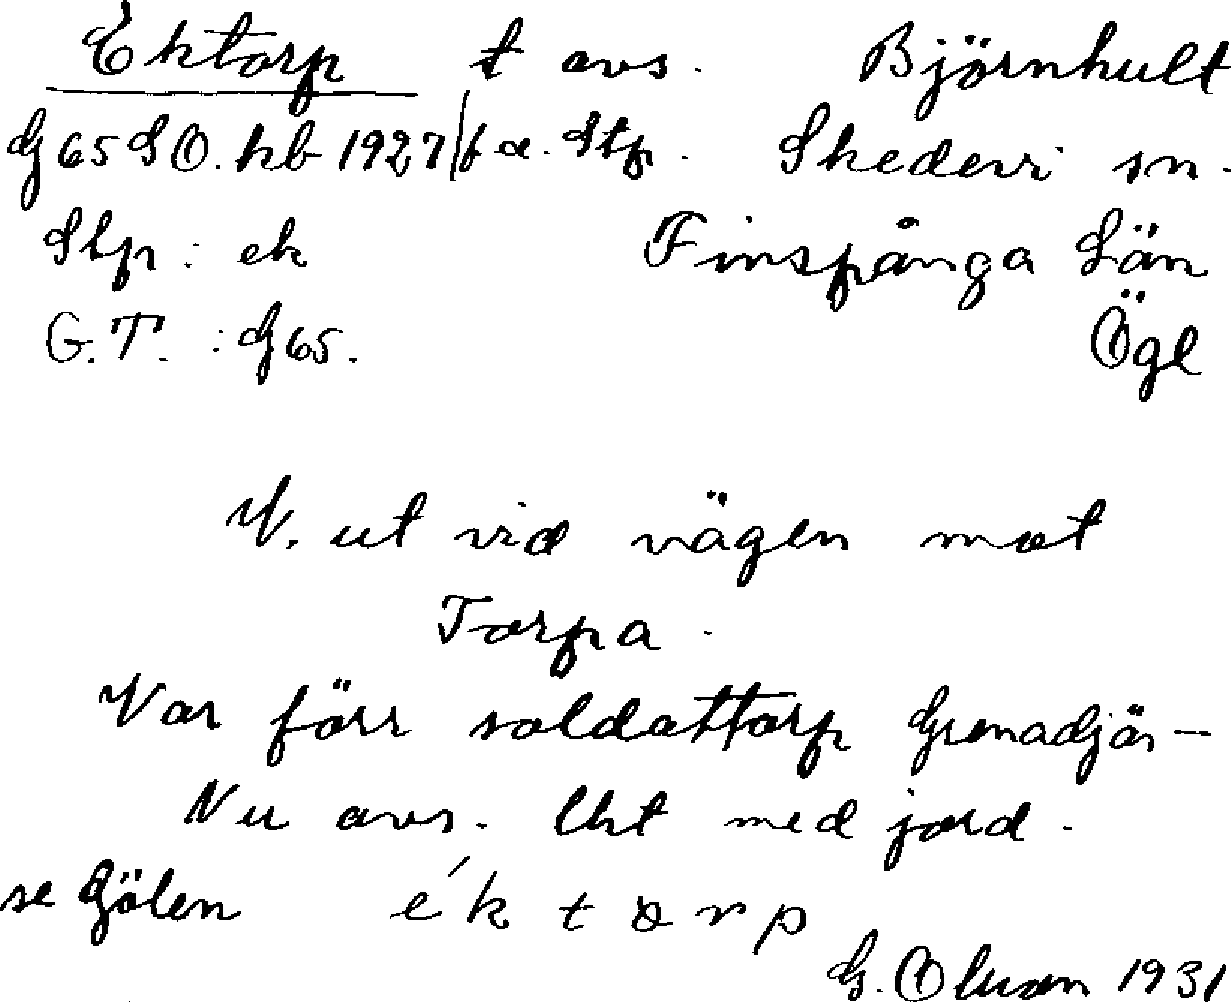 Ektorp t avs. Björnhult
G 65 S O. hb 1927/f a. Stp. Skedevi sn.
Stp: ek Finspånga Län
G.T. : G 65. Ögl
V. ut vid vägen mot
Torpa.
Var förr soldattorp Grenadjär-
Nu avs. Lht med jord.
se Gölen éktorp
G. Olsson 1931